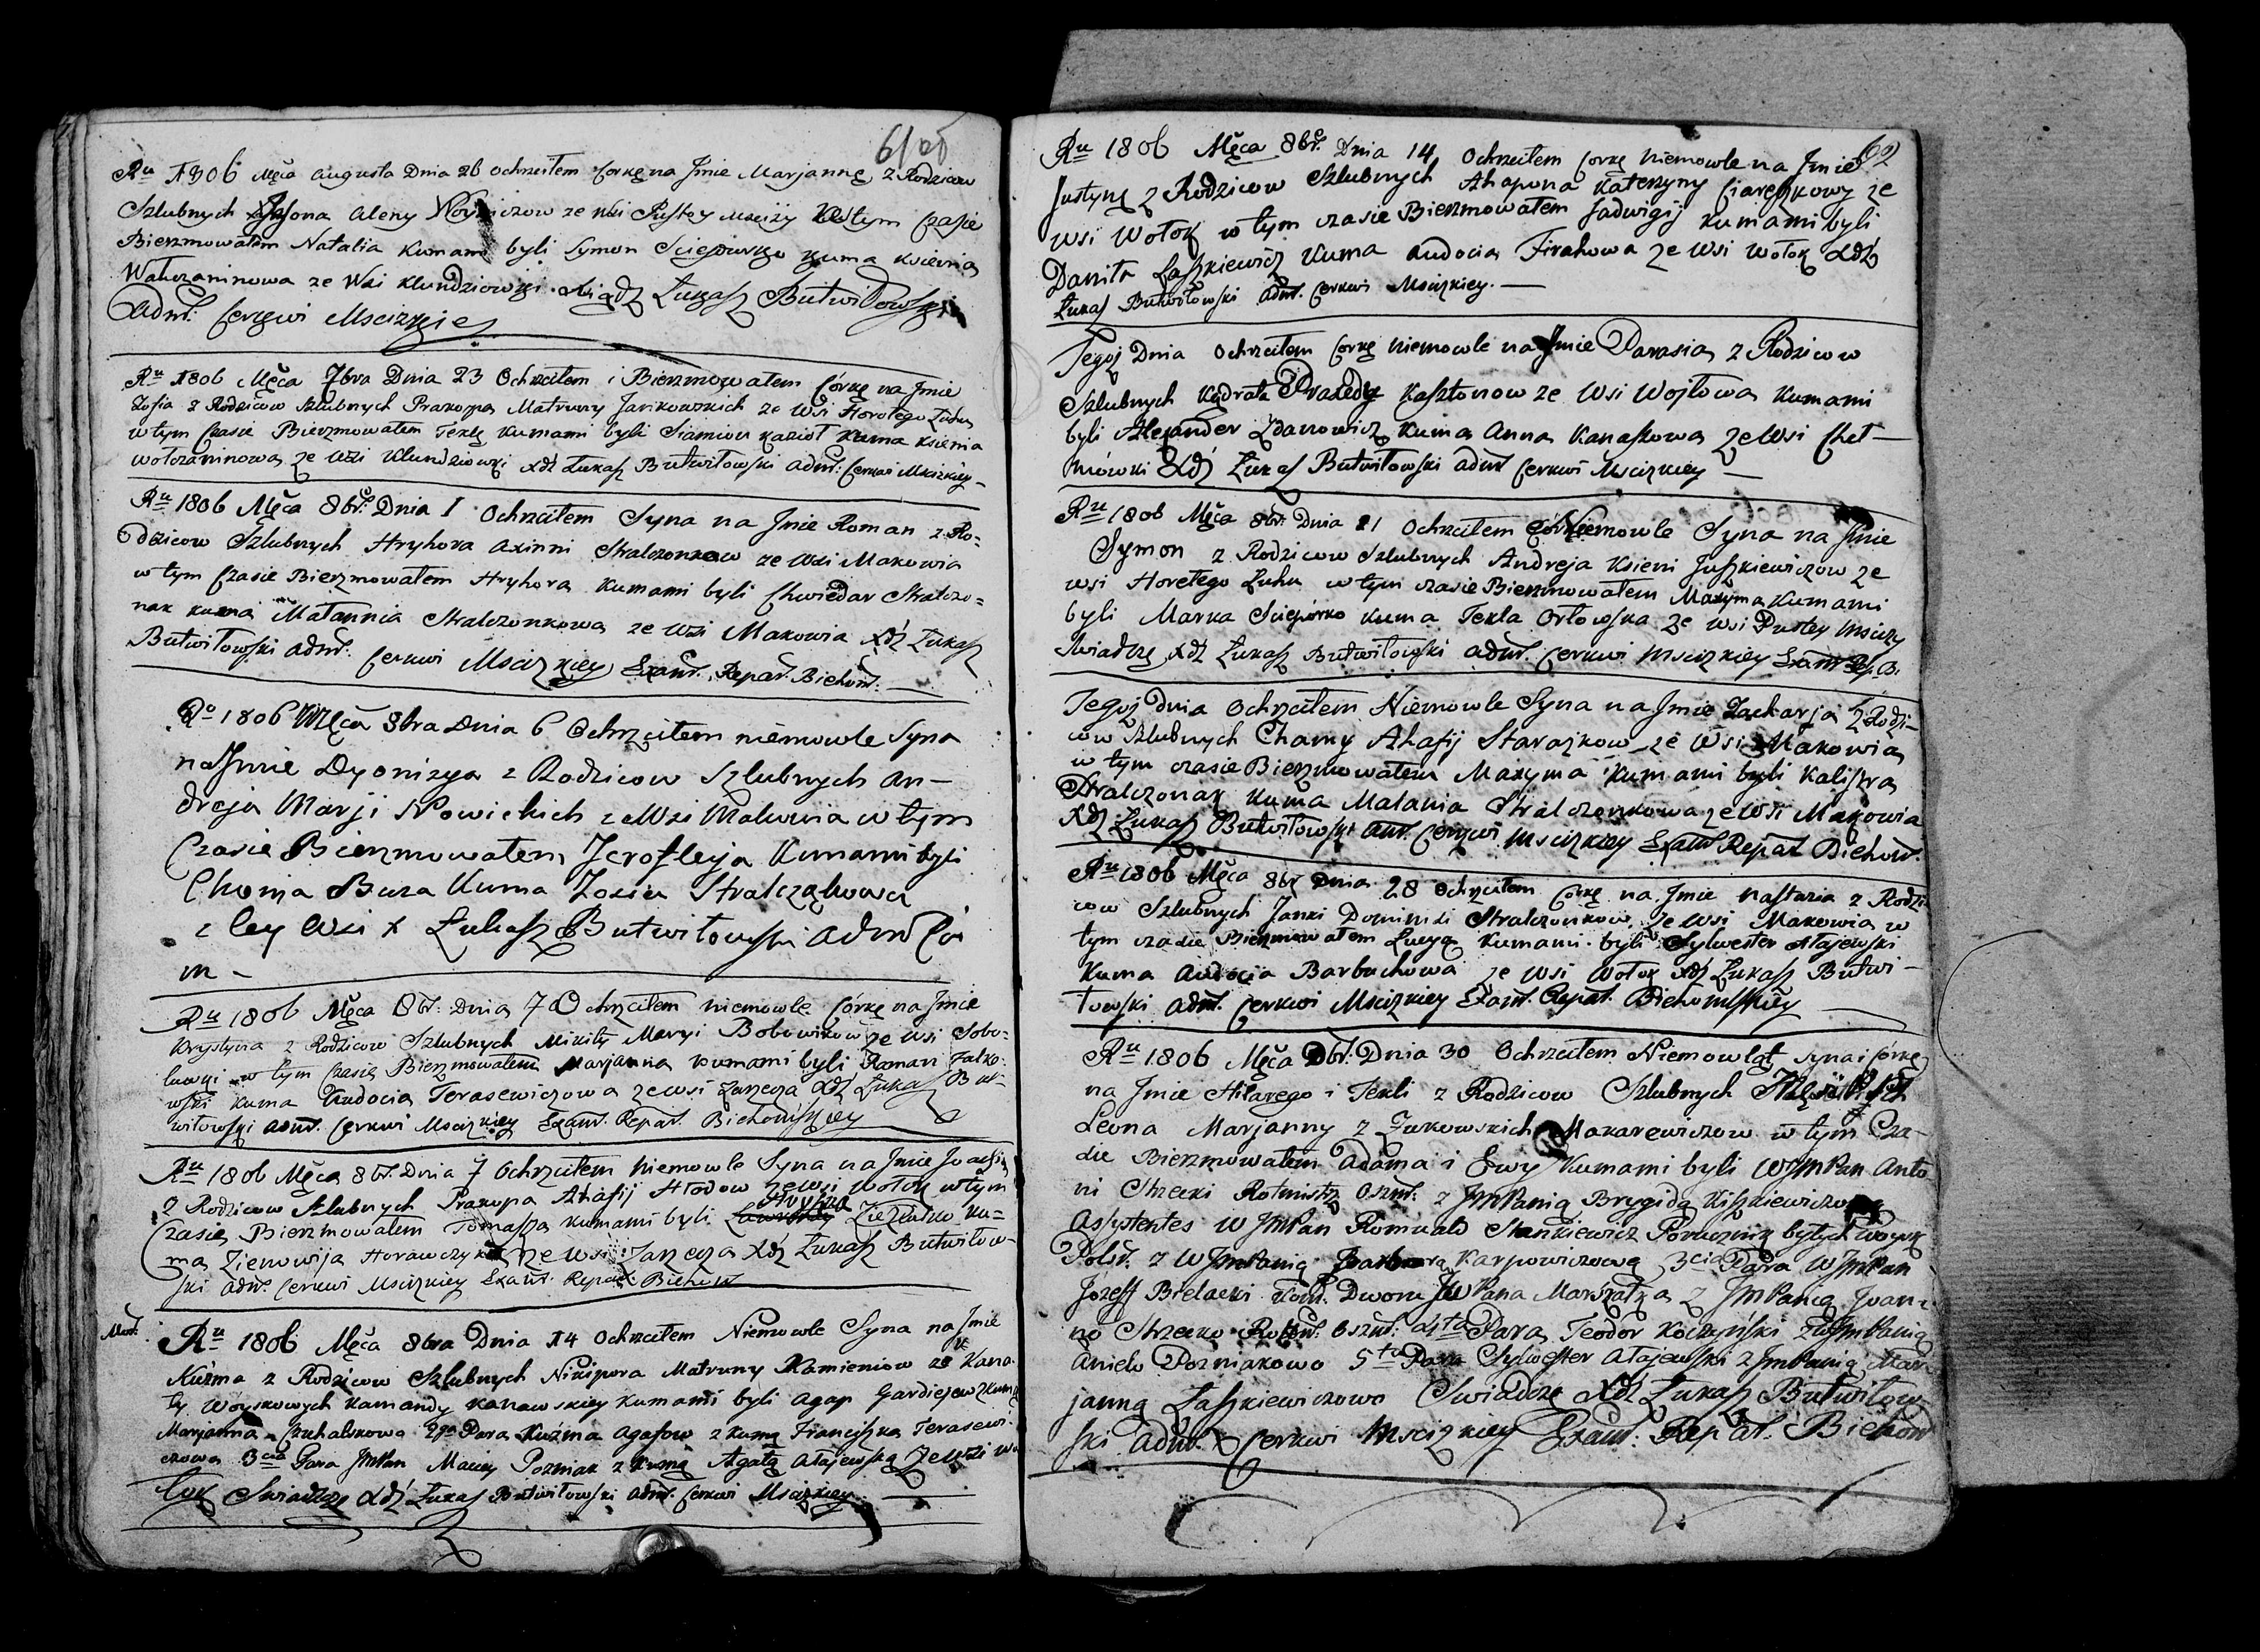 61
Ru 1806 Mca Augusta Dnia 26 Ochrzciłem Corkę na Jmie Marjannę z Rodzicow
Szlubnych Aleny ze Wsi Pustey Mscizy W tym Czasie
Bierzmowałem Natalia Kumami byli Symon Sciepurko Kuma Ksienia
Wałczaninowa ze Wsi Klundziowki Xiądz Łukasz Butwiłowski
Adm: Cerkwi Mscizkiej
Ru 1806 Męca 7bra Dnia 23 Ochrzciłem i Bierzmowałem Córkę na Jmie
Zofia z Rodzicow Szlubnych Prakopa Matruny Jankowskich ze Wsi Horełego Łuhu
w tym Czasie Bierzmowałem Teklę Kumami byli Siamion Kazioł Kuma Ksienia
Wołczaninowa ze Wsi Klundziowki Xdz Łukasz Butwiłowski Adm: Cerkwi Mscizkiey
Ru 1806 Męca 8br: Dnia 1 Ochrzciłem Syna na Jmie Roman z Ro=
dzicow Szlubnych Hryhora Axinni Stralczonkow ze Wsi Makowia
w tym Czasie Bierzmowałem Hryhora Kumami byli Chwiedar Stralczo=
nak Kuma Małannia Stralczonkowa ze Wsi Makowia Xdz Łukasz
Butwiłowski Adm: Cerkwi Mscizkiey Exam. Repar. Bichom:
Ro 1806 Męca 8bra Dnia 6 Ochrzciłem niemowle Syna
na Jmie Dyonizya z Rodzicow Szlubnych An-
dreja Marji Nowickich ze Wsi Makowia w tym
Czasie Bierzmowałem Jerofieja Kumami byli
Choma Buza Kuma Zosia Stralczakowa
z tey Wsi X Łukasz Butwiłowski Adm Cer
m -
Ru 1806 Męca 8br: Dnia 7 Ochrzciłem niemowle Córkę na Jmie
Krystyna z Rodzicow Szlubnych Mikity Maryi Bobowikow ze Wsi Sobo=
luwki w tym Czasie Bierzmowałem Marjanna Kumami byli Roman Falko=
wski Kuma Audocia Terasewiczowa ze Wsi Zarzecza Xdz Łukasz But-
wiłowski Adm. Cerkwi Mscizkiey Exam. Repar. Bichomskiey
Ru 1806 Męca 8br: Dnia 7 Ochrzciłem Niemowle Syna na Jmie Joachim
z Rodzicow Szlubnych Prakopa Ahafij Hłodow ze Wsi Wołok w tym
Czasie Bierzmowałem Tomasza Kumami byli Hryszka Ziezlutko Ku=
ma Zienowija ze Wsi Zarzecza Xdz Łukasz Butwiłow-
ski Adm. Cerkwi Mscizkiey Exam. Repar. Bichom
Ru 1806 Męca 8bra Dnia 14 Ochrzciłem Niemowle Syna na Jmie
Kuzma z Rodzicow Szlubnych Nikipora Matruny Kamieniow
ty Woyskowych Kamandy Kanawskiey Kumami byli Agap Gardiejew z Kumą
Marjanna 2ga Para Kuzma Agafow z Kumą Franciszka Terasewi-
czowa 3cia Para JmPan Maciey Pozniak z Kumą Agatą Ałajewską ze Wsi Wo
łok Swiadczę Xdz Łukasz Butwiłowski Adm. Cerkwi Mscizkiey
62
Ru 1806 Męca 8br. Dnia 14 Ochrzciłem Corkę Niemowle na Jmie
Justynę z Rodzicow Szlubnych Ahapona Kateryny ze
Wsi Wołok w tym czasie Bierzmowałem Jadwigij Kumami byli
Daniła Łaszkiewicz Kuma Audocia Firahowa ze Wsi Wołok Xdz
Łukasz Butwiłowski Adm. Cerkwi Mscizkiey.
Tegoj Dnia Ochrzciłem Corkę Niemowle na Jmie Parasia z Rodzicow
Szlubnych Kądrata Praxedy Kasztonow ze Wsi Wojtowa Kumami
byli Alexander Zdanowicz Kuma Anna Kanaszowa ze Wsi Cheł-
mowki Xdz Łukasz Butwiłowski Adm Cerkwi Mscizkiey
Ru 1806 Męca 8br: Dnia 21 Ochrzciłem Niemowle Syna na Jmie
Symon z Rodzicow Szlubnych Andreja Ksieni Juszkiewiczow ze
Wsi Horełego Łuhu w tym czasie Bierzmowałem Maxyma Kumami
byli Marka Sciepurko Kuma Tekla Orłowska ze Wsi Pustey Mscizy
Swiadczę Xdz Łukasz Butwiłowski Adm. Cerkwi Mscizkiey Exam Rep. B.
Tegoj Dnia Ochrzciłem Niemowle Syna na Jmie Zacharja z Rodzi-
cow Szlubnych Chamy Ahafij Starazkow ze Wsi Makowia
w tym czasie Bierzmowałem Maxyma Kumami byli Kalistra
Stralczonak Kuma Małania Stralczonkowa ze Wsi Makowia
Xdz Łukasz Butwiłowski Adm. Cerkwi Mscizkiey Exam Repar Bichom.
Ru 1806 Męca 8br Dnia 28 Ochrzciłem Corkę na Jmie Nastazia z Rodzi
cow Szlubnych Janki Dominiki Stralczonkow ze Wsi Makowia w
tym czasie Bierzmowałem Łucyą Kumami byli Sylwester Ałajewski
Kuma Audocia Barbuchowa ze Wsi Wołok Xdz Łukasz Butwi-
łowski Adm. Cerkwi Mscizkiey Exam. Repar. Bichomskiey
Ru 1806 Męca 8br: Dnia 30 Ochrzciłem Niemowląt Syna i Córkę
na Jmie Hilarego i Tekli z Rodzicow Szlubnych
Leona Marjanny z Zukowskich Makarewiczow w tym Cza-
sie Bierzmowałem Adama i Ewy Kumami byli WJmPan Anto
ni Strzecki Rotmistrz Oszm. z JmPanią Brygidą Kiszkiewiczową
Assystentes WJmPan Romuald Stankiewicz Porucznik byłych Woysk
Polsk. z WJmPanią Barbarą Karpowiczową 3cia Para WJmPan
Jozeff Bielacki Kom. Dworu JWPana Marszałka z JmPanią Joan-
ną Strzecko Rotm. Oszm. 4ta Para Teodor Koczyński z WJmPanią
Anielo Pozniakowo 5ta Para Sylwester Ałajewski z JmPanią Mar
janną Łaszkiewiczowo Swiadczę Xdz Łukasz Butwiłow
ski Adm. Cerkwi Mscizkiey Exam. Repar. Bichom